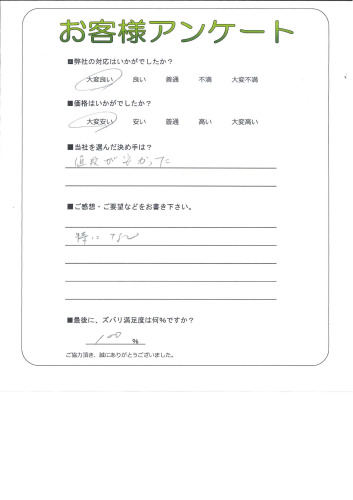 お客様アンケート
■弊社の対応はいかがでしたか？
大変良い 良い 普通 不満 大変不満
■価格はいかがでしたか？
大変安い 安い 普通 高い 大変高い
■当社を選んだ決め手は？
値段が安かった
■ご感想・ご要望などをお書き下さい。
特になし
■最後に、ズバリ満足度は何%ですか？
100 %
ご協力頂き、誠にありがとうございました。